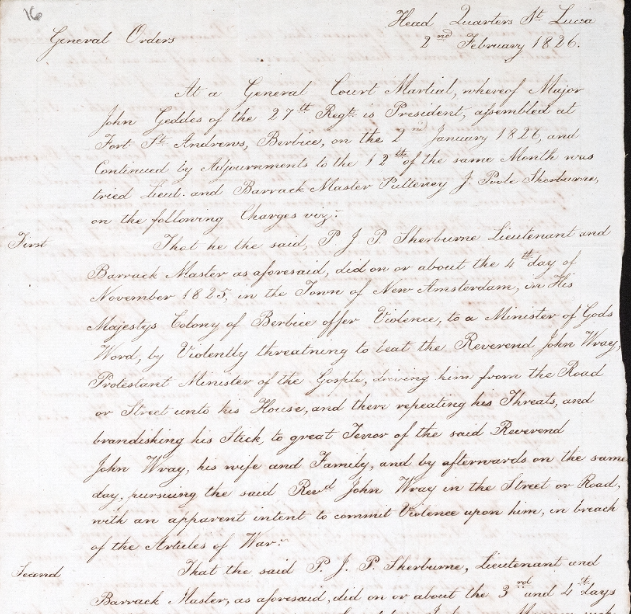 16
Head Quarters St. Lucia
General Orders
2nd February 1826.
At a General Court Martial, whereof Major
John Geddes of the 27th Regt. is President, assembled at
Fort St. Andrews, Berbice, on the 2nd January 1826, and
Continued by Adjournments to the 12th of the same Month was
tried Lieut. and Barrack Master Pulteney J. Poole Sherburne,
on the following Charges viz:
First
That he the said, P J P Sherburne Lieutenant and
Barrack Master as aforesaid, did on or about the 4th day of
November 1825, in the Town of New Amsterdam, in His
Majestys Colony of Berbice offer Violence, to a Minister of Gods
Word, by Violently threatning to beat the Reverend John Wray,
Protestant Minister of the Gosple, driving him from the Road
or Street unto his House, and there repeating his Threats, and
brandishing his Stick, to great Terror of the said Reverend
John Wray, his wife and Family, and by afterwards on the same
day, pursuing the said Revd John Wray in the Street or Road,
with an apparent intent to commit Violence upon him, in breach
of the Articles of War:
Second
That the said P. J. P. Sherburne, Lieutenant and
Barrack Master, as aforesaid, did on or about the 3rd and 4th days